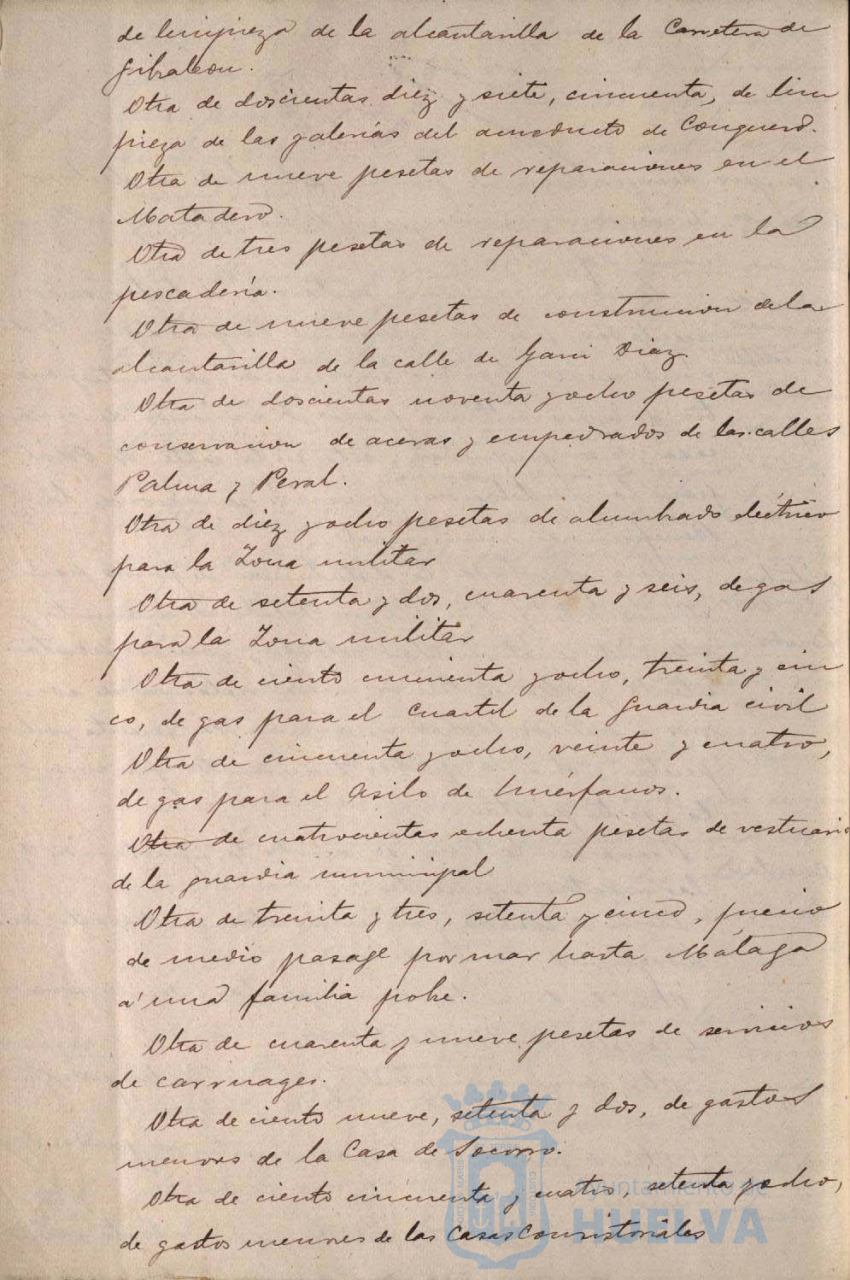 de limpieza de la alcantarilla de la Carretera de
Gibraleon.
Otra de doscientas diez y siete, cincuenta, de lim
pieza de las galerías del acueducto de Conquero.
Otra de nueve pesetas de reparaciones en el
Matadero.
Otra de tres pesetas de reparaciones en la
pescadería.
Otra de nueve pesetas de construccion de la
alcantarilla de la calle de Garci Diaz.
Otra de doscientas noventa y ocho pesetas de
conservacion de aceras y empedrados de las calles
Palma y Peral.
Otra de diez y ocho pesetas de alumbrado eléctrico
para la Zona militar
Otra de setenta y dos, cuarenta y seis, de gas
para la Zona militar
Otra de ciento cincuenta y ocho, treinta y cin
co, de gas para el Cuartel de la Guardia civil
Otra de cincuenta y ocho, veinte y cuatro,
de gas para el Asilo de huérfanos.
Otra de cuatrocientas ochenta pesetas de vestuario
de la guardia municipal
Otra de treinta y tres, setenta y cinco, precio
de medio pasage por mar hasta Málaga
á una familia pobre.
Otra de cuarenta y nueve pesetas de servicios
de carruages.
Otra de ciento nueve, setenta y dos, de gastos
menores de la Casa de Socorro.
Otra de ciento cincuenta y cuatro, setenta y ocho,
de gastos menores de las Casas Consistoriales
Ayuntamiento de
HUELVA